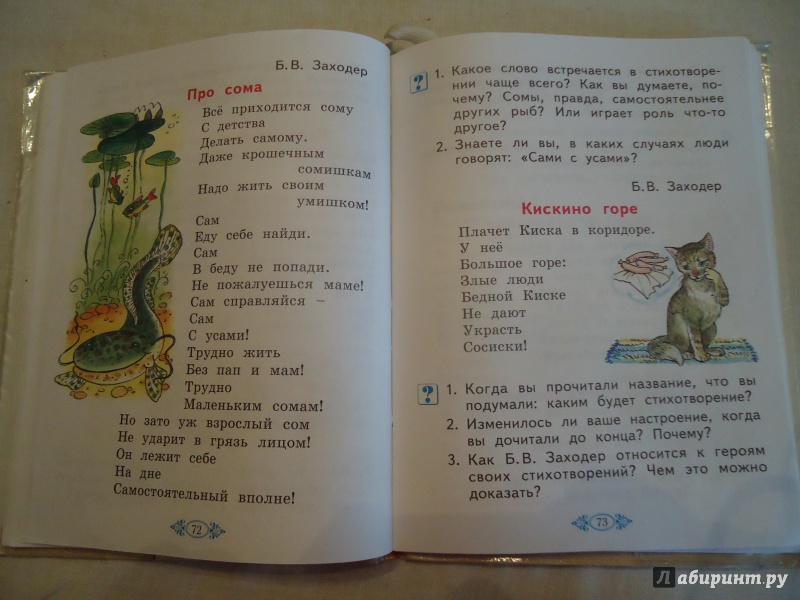 Б.В. Заходер
Про сома
Всё приходится сому
С детства
Делать самому.
Даже крошечным
сомишкам
Надо жить своим
умишком!
Сам
Еду себе найди.
Сам
В беду не попади.
Не пожалуешься маме!
Сам справляйся –
Сам
С усами!
Трудно жить
Без пап и мам!
Трудно
Маленьким сомам!
Но зато уж взрослый сом
Не ударит в грязь лицом!
Он лежит себе
На дне
Самостоятельный вполне!
72
? 1. Какое слово встречается в стихотворе-
нии чаще всего? Как вы думаете, по-
чему? Сомы, правда, самостоятельнее
других рыб? Или играет роль что-то
другое?
2. Знаете ли вы, в каких случаях люди
говорят: «Сами с усами»?
Б.В. Заходер
Кискино горе
Плачет Киска в коридоре.
У неё
Большое горе:
Злые люди
Бедной Киске
Не дают
Украсть
Сосиски!
? 1. Когда вы прочитали название, что вы
подумали: каким будет стихотворение?
2. Изменилось ли ваше настроение, когда
вы дочитали до конца? Почему?
3. Как Б.В. Заходер относится к героям
своих стихотворений? Чем это можно
доказать?
73
Лабиринт.ру